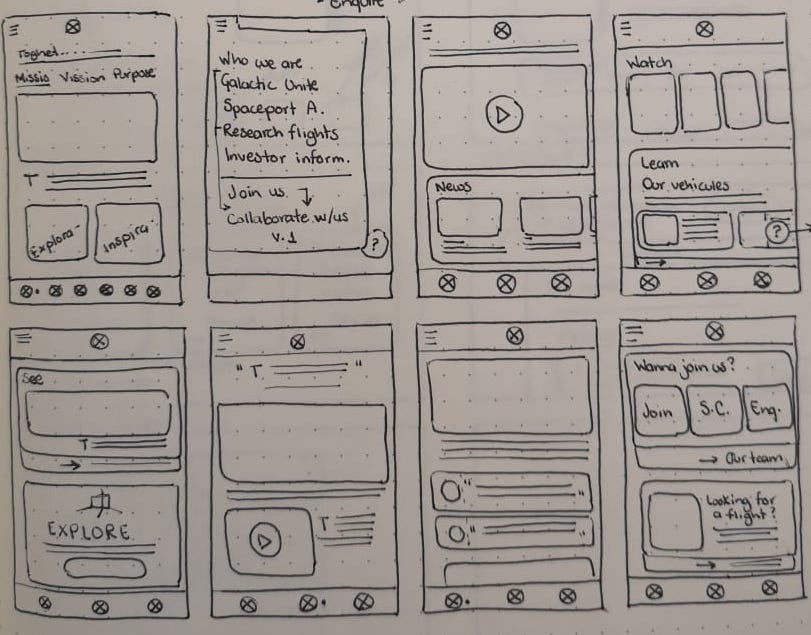 - Enquire
Tagned...
Missio Vission Purpose
T
Explora-
Inspira-
Who we are
Galactic Unite
Spaceport A.
Research flights
Investor inform.
Join us
Collaborate w/us
v.1
?
News
Watch
Learn
Our vehicules
?
See
T
EXPLORE
" T "
T
" "
" "
Wanna join us?
Join S.C. Eng.
→ Our team
Looking for
a flight?